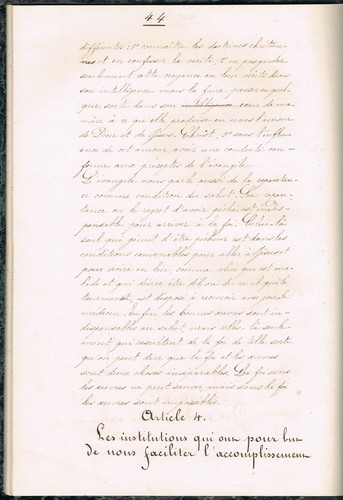 44
différentes: 1° connaître les doctrines chrétien-
nes et en confesser la vérité; 2° ne pas garder
seulement cette croyance en leur vérité dans
son intelligence mais la faire passer en quel-
que sorte dans son intelligence cœur de ma-
nière à ce qu'elle produise en nous l'amour
de Dieu et de Jésus-Christ, 3° sous l'influen-
ce de cet amour, avoir une conduite con-
forme aux préceptes de l'évangile.
L'évangile nous parle aussi de la repentan-
ce comme condition du salut. La repen-
tance ou le regret d'avoir péché est indis-
pensable pour arriver à la foi. Celui-là
seul qui gémit d'être pécheur est dans les
conditions convenables pour aller à Jésus et
pour croire en lui, comme celui qui est ma-
lade et qui désire être délivré du mal qui le
tourmente, est disposé à recevoir avec joie le
médecin. Enfin les bonnes œuvres sont in-
dispensables au salut, mais celles-là seule-
ment qui résultent de la foi de telle sorte
qu'on peut dire que la foi et les œuvres
sont deux choses inséparables. La foi sans
les œuvres ne peut sauver, mais sans la foi
les œuvres sont impossibles.
Article 4.
Les institutions qui ont pour but
de nous faciliter l'accomplissement